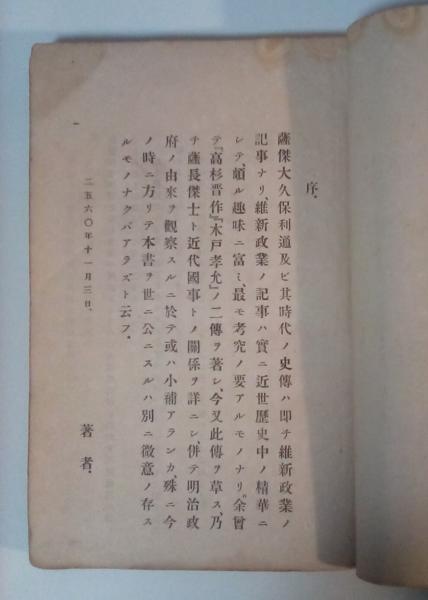 序、
薩傑大久保利通及ビ其時代ノ史傳ハ即チ維新政業ノ
記事ナリ、維新政業ノ記事ハ實ニ近世歷史中ノ精華ニ
シテ、頗ル趣味ニ富ミ、最モ考究ノ要アルモノナリ、余曾
テ『高杉晋作』『木戸孝允』ノ二傳ヲ著シ、今又此傳ヲ草ス、乃
チ薩長傑士ト近代國事トノ關係ヲ詳ニシ、併テ明治政
府ノ由來ヲ觀察スルニ於テ或ハ小補アランカ、殊ニ今
ノ時ニ方リテ本書ヲ世ニ公ニスルハ別ニ微意ノ存ス
ルモノナクバアラズト云フ、
二五六〇年十一月三日、
著者、